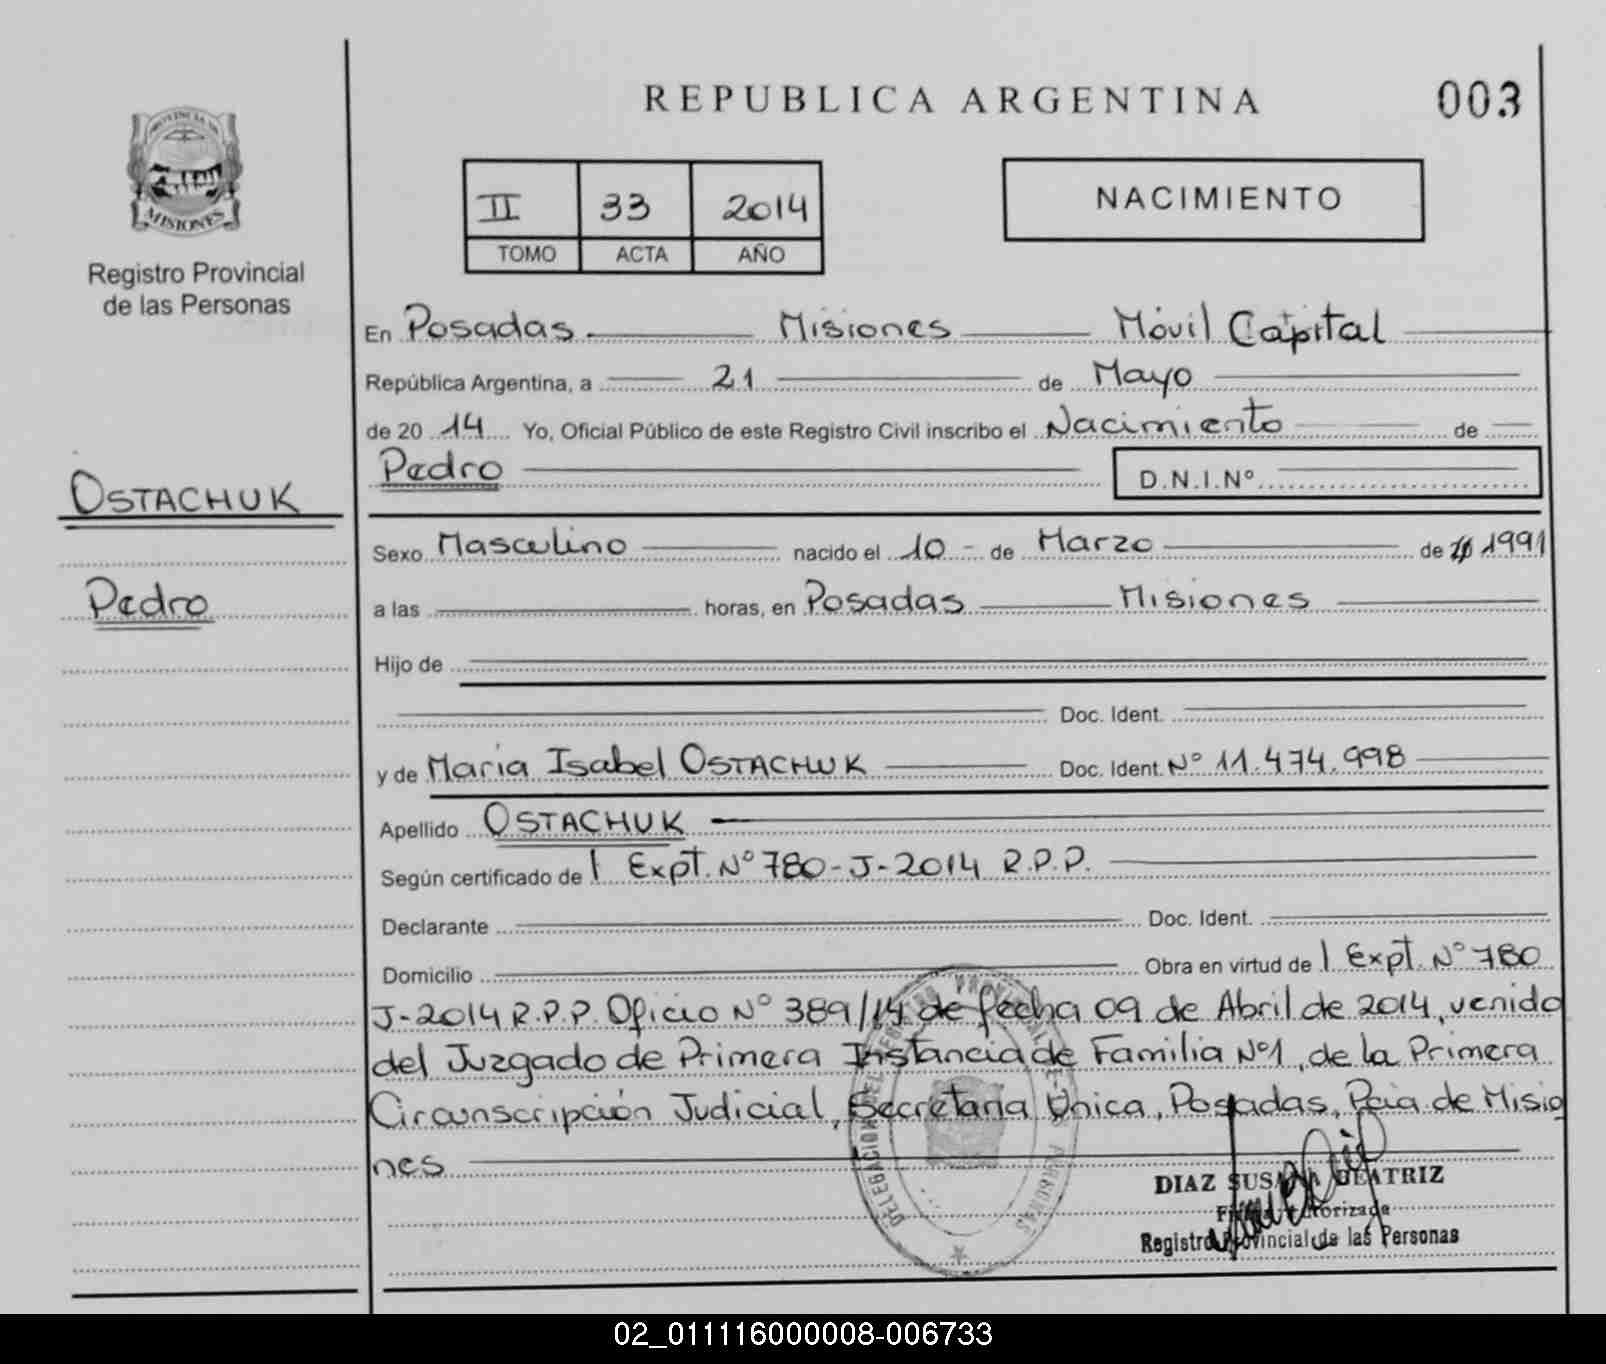 REPUBLICA ARGENTINA
003
PROVINCIA DE
MISIONES
Registro Provincial
de las Personas
II 33 2014
TOMO ACTA AÑO
NACIMIENTO
En Posadas Misiones Móvil Capital
República Argentina, a 21 de Mayo
de 20 14 Yo, Oficial Público de este Registro Civil inscribo el Nacimiento de
Pedro D.N.I.Nº
OSTACHUK
Pedro
Sexo Masculino nacido el 10 de Marzo de 1991
a las horas, en Posadas Misiones
Hijo de
Doc. Ident.
y de Maria Isabel OSTACHUK Doc. Ident. Nº 11.474.998
Apellido OSTACHUK
Según certificado de | Expt. Nº 780-J-2014 R.P.P.
Declarante Doc. Ident.
Domicilio Obra en virtud de | Expt. Nº 780
J-2014 R.P.P. Oficio Nº 389/14 de fecha 09 de Abril de 2014, venido
del Juzgado de Primera Instancia de Familia Nº1, de la Primera
Circunscripción Judicial, Secretaria Unica, Posadas, Pcia. de Misio
nes
DIAZ SUSANA BEATRIZ
Firma Autorizada
Registro Provincial de las Personas
02_011116000008-006733